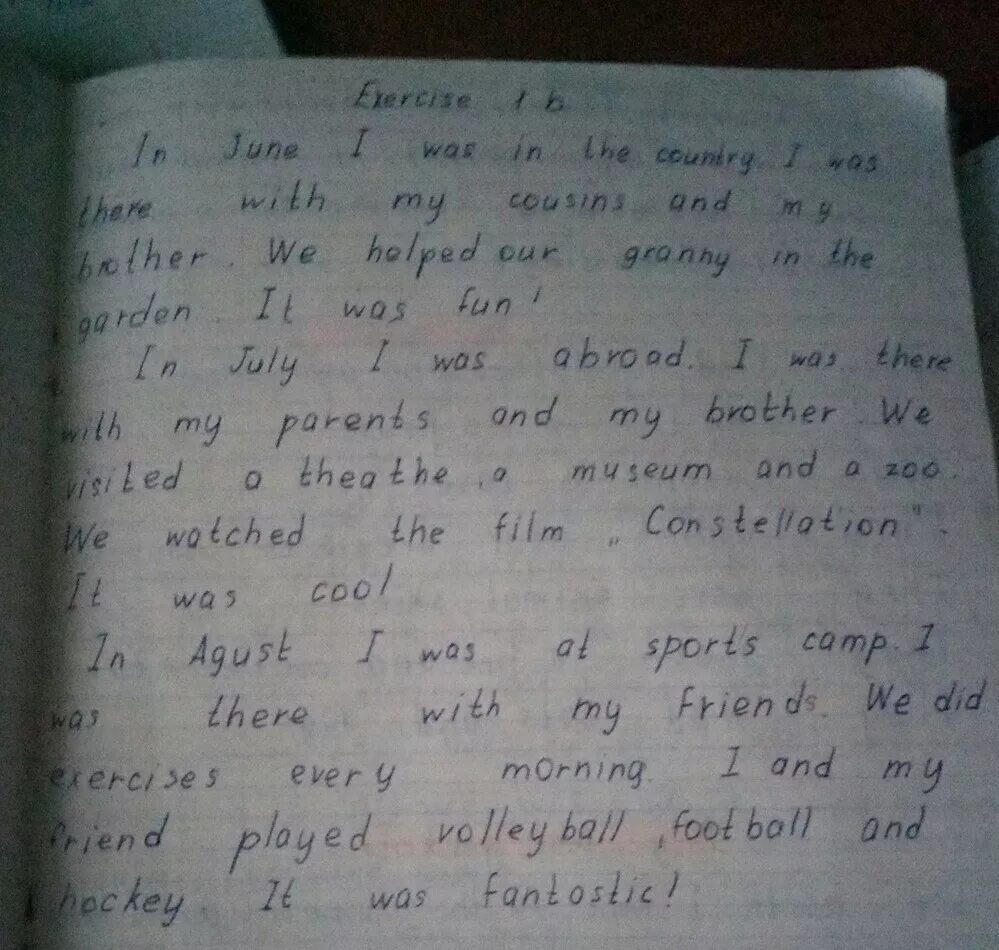 Exercise 1 b
In June I was in the country. I was
there with my cousins and my
brother. We helped our granny in the
garden. It was fun!
In July I was abroad. I was there
with my parents and my brother. We
visited a theathe, a museum and a zoo.
We watched the film „Constellation".
It was cool
In Agust I was at sports camp. I
was there with my friends. We did
exercises every morning. I and my
friend played volleyball, football and
hockey. It was fantostic!